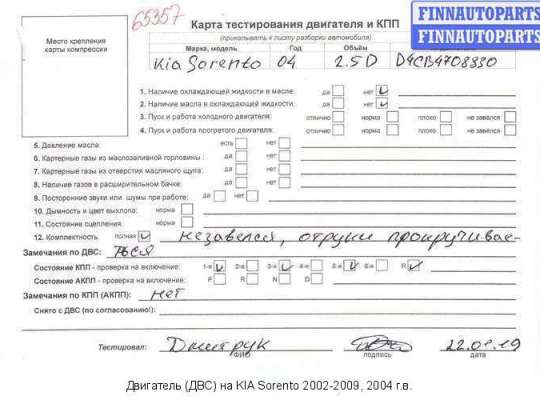 65357
Карта тестирования двигателя и КПП
(прикалывать к листу разборки автомобиля)
FINNAUTOPARTS
FINNAUTOPARTS
Место крепления
карты компрессии
Марка, модель Год Объём
Kia Sorento 04 2.5 D D4CB4708330
1. Наличие охлаждающей жидкости в масле: да нет
2. Наличие масла в охлаждающей жидкости: да нет
3. Пуск и работа холодного двигателя: отлично норма плохо не завелся
4. Пуск и работа прогретого двигателя: отлично норма плохо не завелся
5. Давление масла: есть нет
6. Картерные газы из маслозаливной горловины: да нет
7. Картерные газы из отверстия масляного щупа: да нет
8. Наличие газов в расширительном бачке: да нет
9. Посторонние звуки или шумы при работе: да нет
10. Дымность и цвет выхлопа: норма
11. Состояние сцепления: норма
12. Комплектность полная незавелся, отруки прокручивае-
Замечания по ДВС: ться
Состояние КПП - проверка на включение: 1-я 2-я 3-я 4-я 5-я 6-я R
Состояние АКПП - проверка на включение: P R N D
Замечания по КПП (АКПП): нет
Снято с ДВС (по согласованию!):
Тестировал: Дмитрук 22.01.19
ФИО подпись дата
Двигатель (ДВС) на KIA Sorento 2002-2009, 2004 г.в.